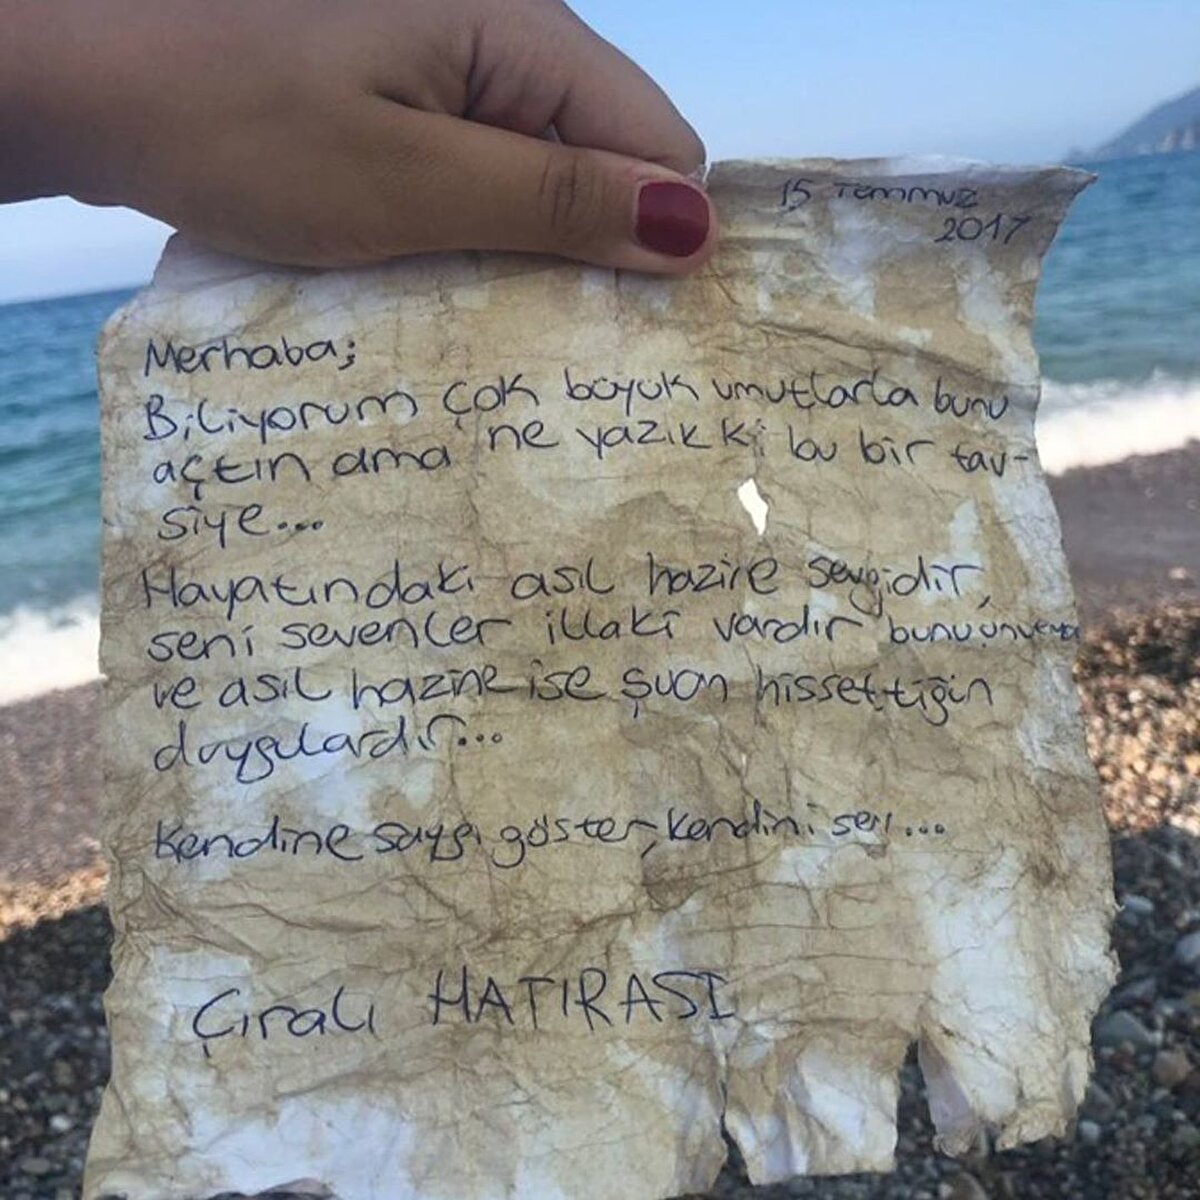 15 Temmuz
2017
Merhaba;
Biliyorum çok büyük umutlarla bunu
açtın ama ne yazıkki bu bir tav-
siye...
Hayatındaki asıl hazine sevgidir,
seni sevenler illaki vardır bunu unutma
ve asıl hazine ise şuan hissettiğin
duygulardır...
Kendine saygı göster, kendini sev...
Çıralı HATIRASI